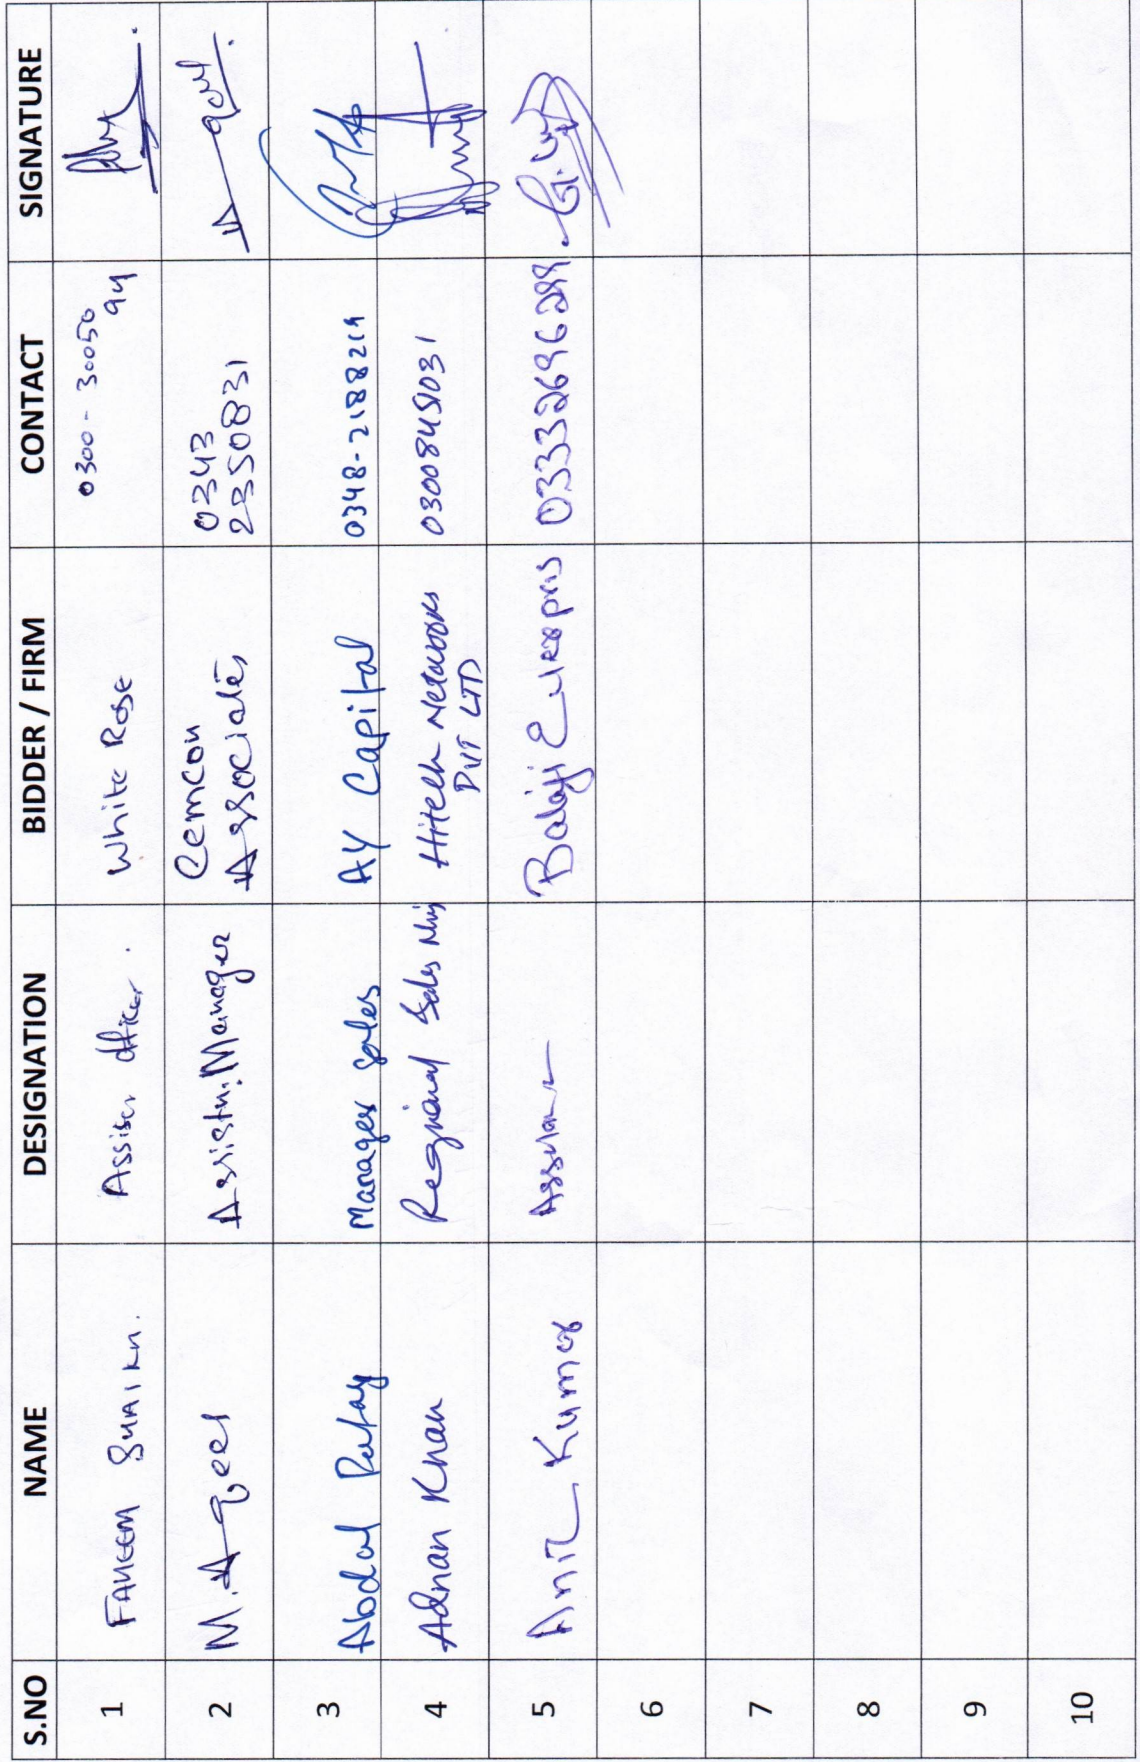 S.NO NAME DESIGNATION BIDDER / FIRM CONTACT SIGNATURE
1 FAHEEM SHAIKH. Officer. White Rose 0300-30050
94
2 M. Aqeel Assistn. Manager Cemcon 0343
Associates 2350831
3 Abdal Rafay Manager Sales AY Capital 0348-2188219
4 Adnan Khan Regional Sales Mnj Hitech Networks 03008451031
PVT LTD
5 Anil Kumar Balaji 03332696288
6
7
8
9
10